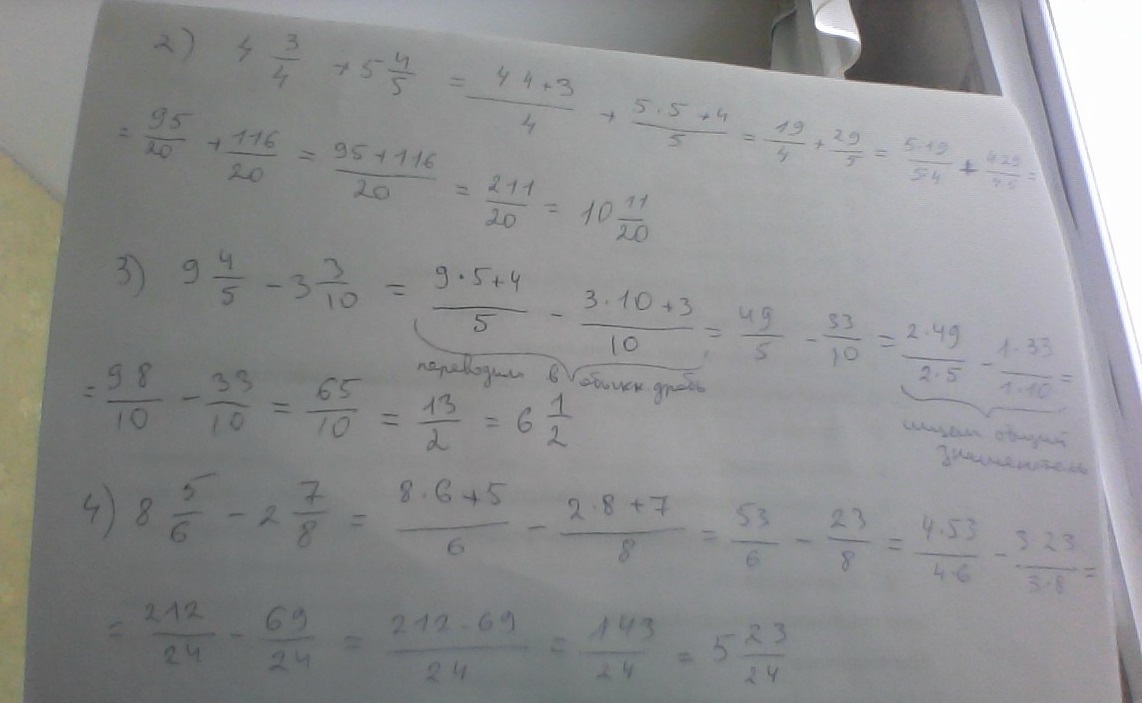 2) 4 3/4 + 5 4/5 = 4 4+3/4 + 5·5+4/5 = 19/4 + 29/5 = 5·19/5 4 + 4 29/4 5 =
= 95/20 + 116/20 = 95+116/20 = 211/20 = 10 11/20
3) 9 4/5 - 3 3/10 = 9·5+4/5 - 3·10+3/10 = 49/5 - 33/10 = 2·49/2·5 - 1·33/1·10 =
переводим в обыкн. дробь
= 98/10 - 33/10 = 65/10 = 13/2 = 6 1/2
ищем общий
знаменатель
4) 8 5/6 - 2 7/8 = 8·6+5/6 - 2·8+7/8 = 53/6 - 23/8 = 4·53/4·6 - 3 23/3·8 =
= 212/24 - 69/24 = 212-69/24 = 143/24 = 5 23/24